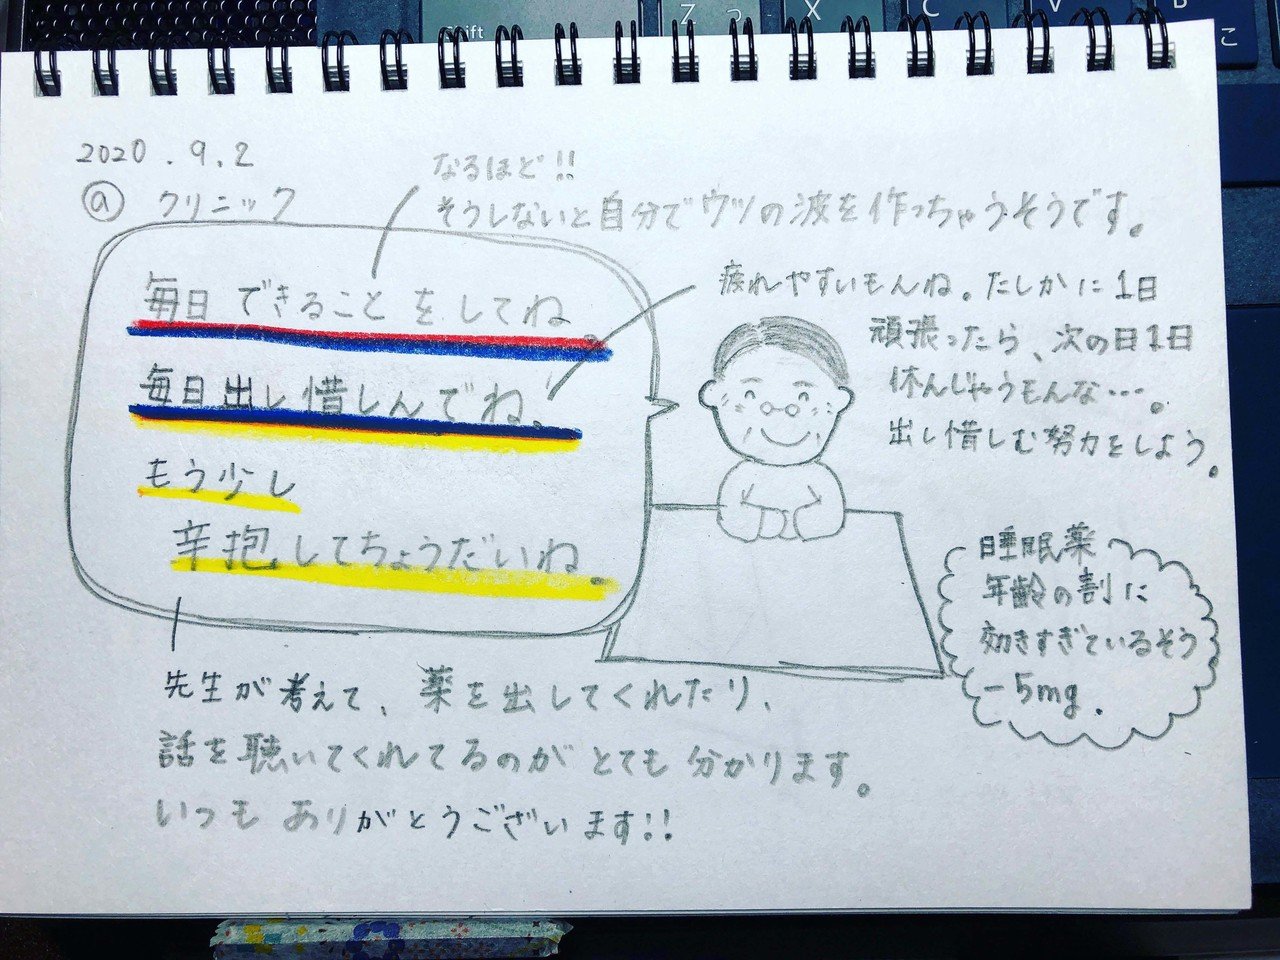 Shift
Z
っ
X
C
V
B
こ
2020.9.2
@ クリニック
なるほど!!
そうしないと自分でウツの波を作っちゃうそうです。
毎日できることをしてね。
毎日出し惜しんでね。
もう少し
辛抱してちょうだいね。
疲れやすいもんね。たしかに1日
頑張ったら、次の日1日
休んじゃうもんな…。
出し惜しむ努力をしよう。
睡眠薬
年齢の割に
効きすぎているそう
-5mg.
先生が考えて、薬を出してくれたり、
話を聴いてくれてるのがとても分かります。
いつもありがとうございます!!